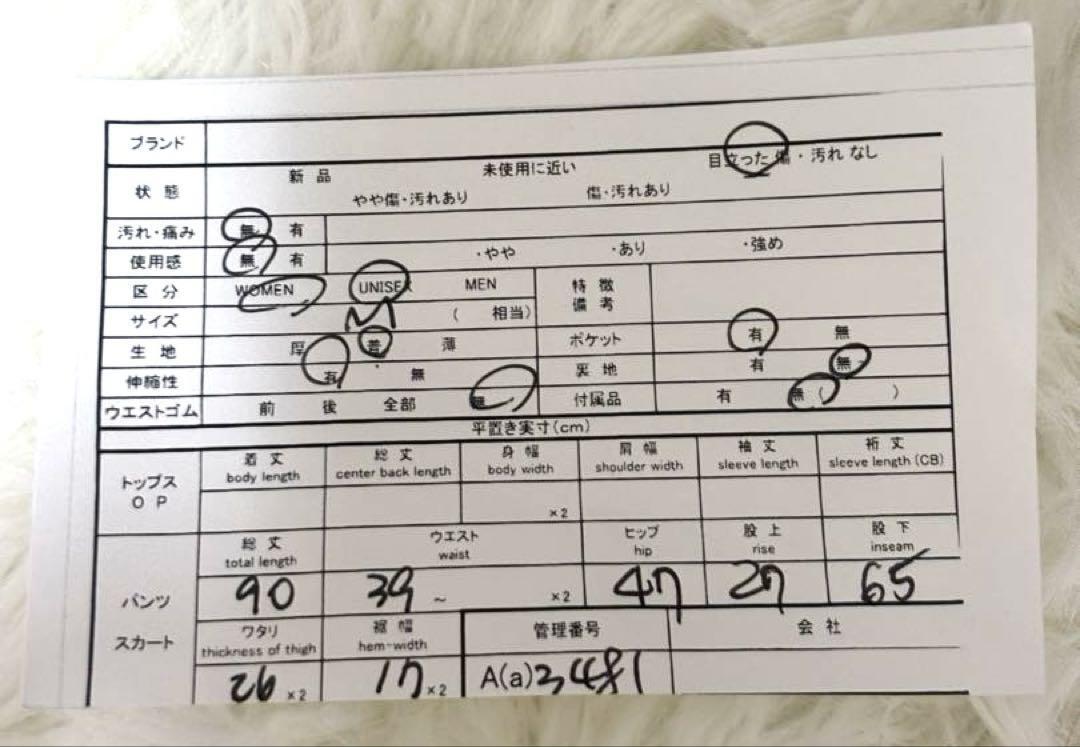 ブランド
状態 新品 未使用に近い 目立った傷・汚れなし
やや傷・汚れあり 傷・汚れあり
汚れ・痛み 無 有
使用感 無 有 ・やや ・あり ・強め
区分 WOMEN UNISEX MEN 特徴 備考
サイズ M ( 相当)
生地 厚 普 薄 ポケット 有 無
伸縮性 有 無 裏地 有 無
ウエストゴム 前 後 全部 無 付属品 有 無 ( )
平置き実寸(cm)
トップス OP
着丈 総丈 身幅 肩幅 袖丈 裄丈
body length center back length body width shoulder width sleeve length sleeve length (CB)
×2
パンツ スカート
総丈 ウエスト ヒップ 股上 股下
total length waist hip rise inseam
90 39 ~ ×2 47 27 65
ワタリ 裾幅 管理番号 会社
thickness of thigh hem-width
26 ×2 17 ×2 A(a)3481